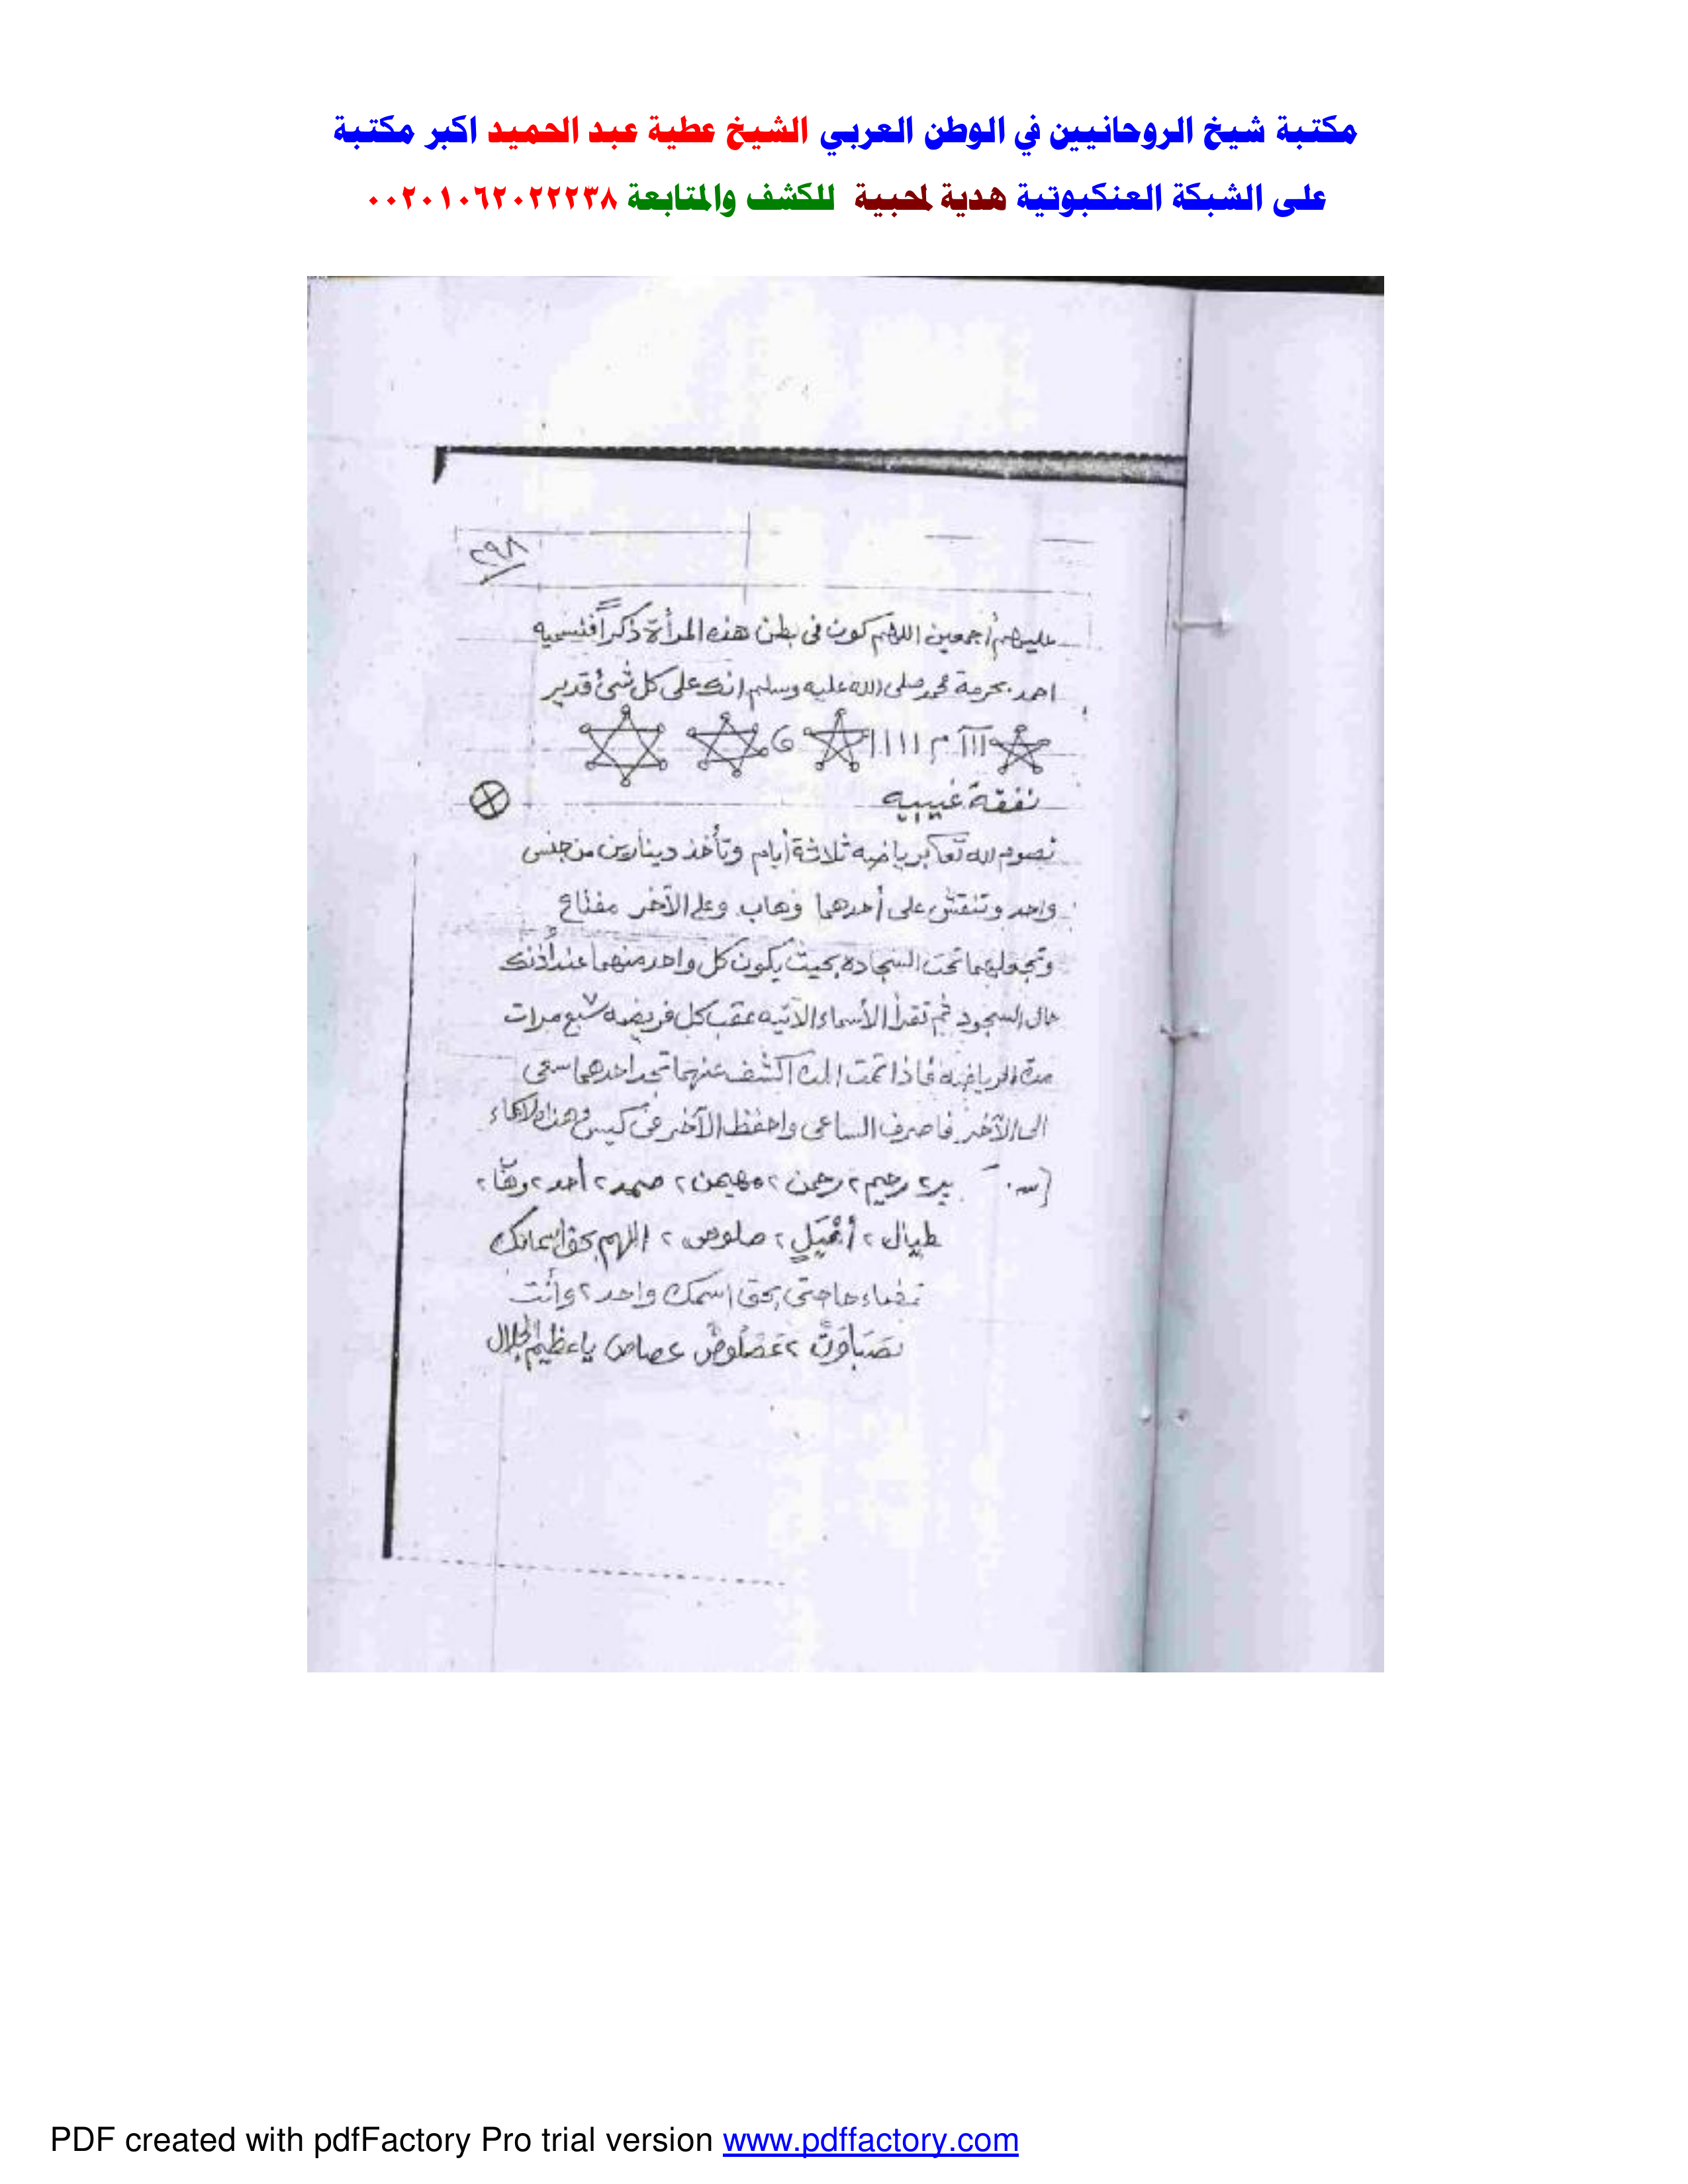 مكتبة شيخ الروحانيين في الوطن العربي الشيخ عطية عبد الحميد اكبر مكتبة
على الشبكة العنكبوتية هدية لمحبية للكشف والمتابعة ٠٠٢٠١٠٦٢٠٢٢٢٣٨
٢٩٨
عليهم أجمعين اللهم كون فى بطن هذه المرأة ذكراً فنسميه
احمد بحرمة محمد صلى الله عليه وسلم انك على كل شئ قدير
نفقة غيبيه
تصوم لله تعا برياضه ثلاثة أيام وتأخذ دينارين من جنس
واحد وتنقش على أحدهما وهاب وعلى الآخر مفتاح
وتجعلهما تحت السجاده بحيث يكون كل واحد منهما عند أذنك
حال السجود ثم تقرأ الأسماء الآتيه عقب كل فريضه سبع مرات
مدة الرياضه فاذا تمت المدة اكشف عنهما تجد احدهما سعى
الى الآخر فاصرف الساعى واحفظ الآخر فى كيس وهذه الاسماء
رحيم ٢ رحمن ٢ مهيمن ٢ صمد ٢ أحد ٢
طيال ٢ صلوص ٢ اللهم بحق اسمائك
قضاء حاجتى بحق اسمك واحد ٢ وأنت
عصاص ياعظيم الجلال
PDF created with pdfFactory Pro trial version www.pdffactory.com